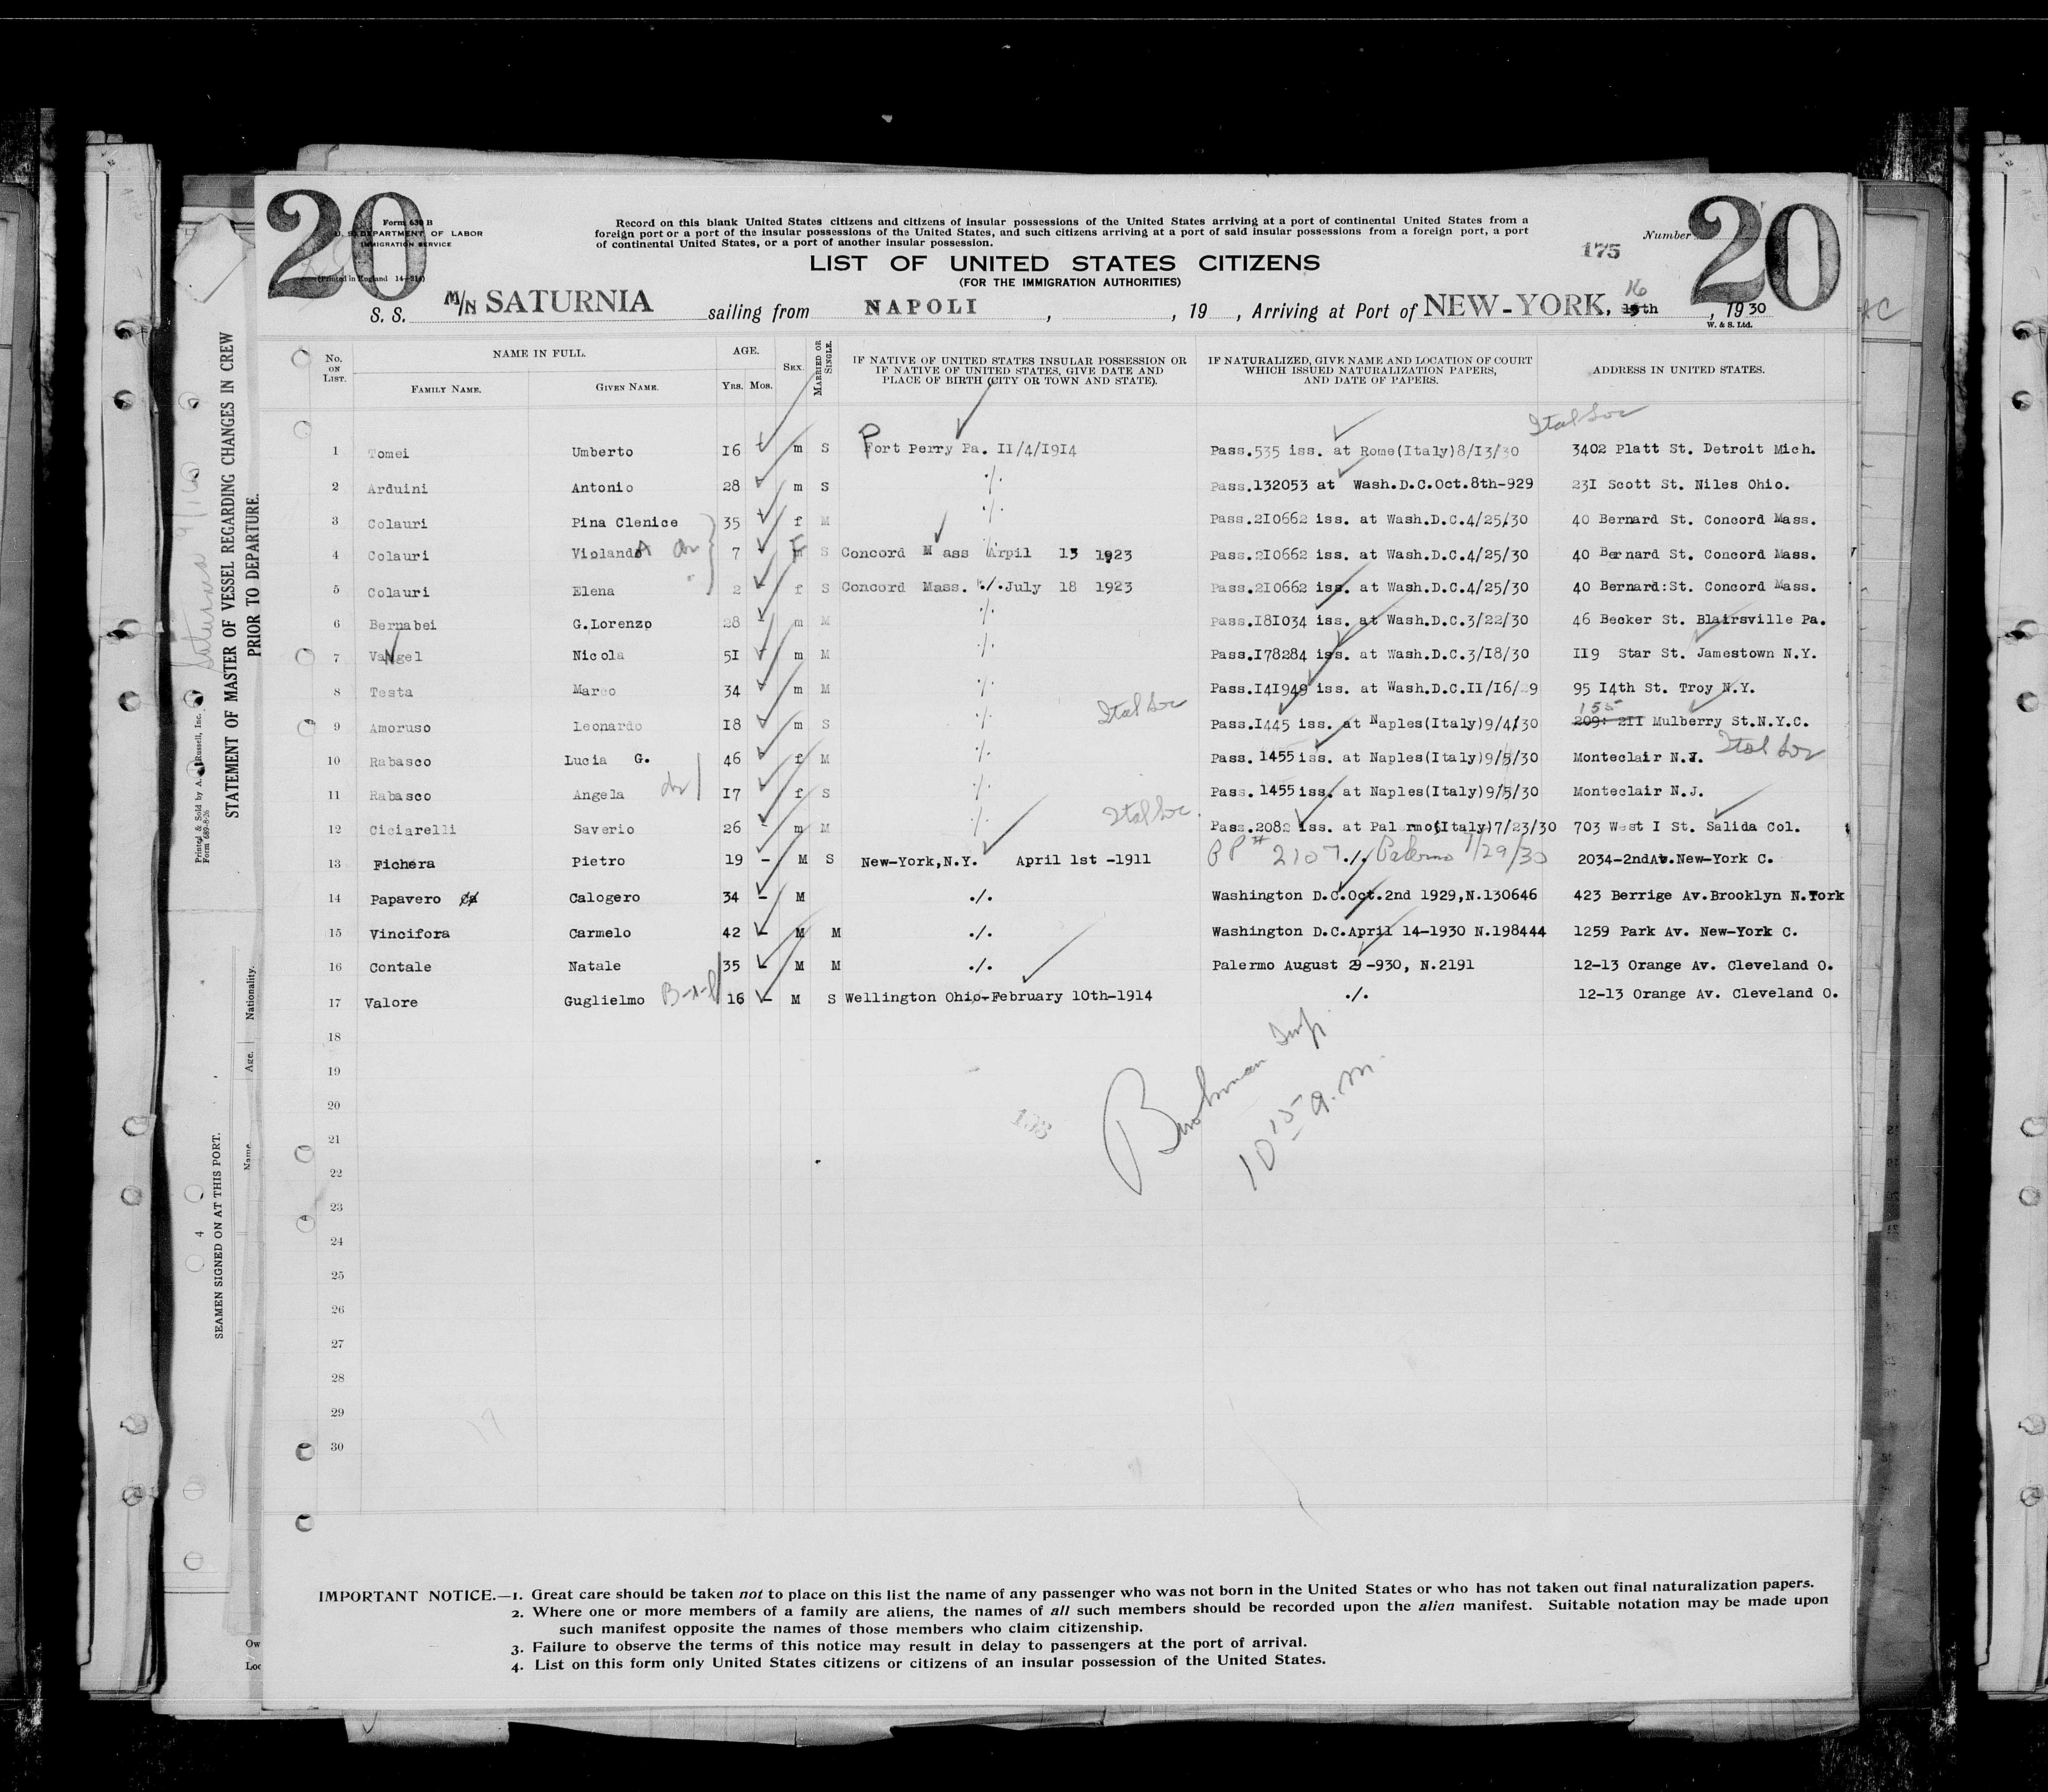 20
Form 630 B
U. S. DEPARTMENT OF LABOR
IMMIGRATION SERVICE
(Printed in England 14—314)
Record on this blank United States citizens and citizens of insular possessions of the United States arriving at a port of continental United States from a
foreign port or a port of the insular possessions of the United States, and such citizens arriving at a port of said insular possessions from a foreign port, a port
of continental United States, or a port of another insular possession.
175
Number
20
LIST OF UNITED STATES CITIZENS
(FOR THE IMMIGRATION AUTHORITIES)
S. S. M/N SATURNIA sailing from NAPOLI , , 19 , Arriving at Port of NEW-YORK, 16 15th , 1930
W. & S. Ltd.
No. ON LIST. NAME IN FULL. AGE. SEX. MARRIED OR SINGLE. IF NATIVE OF UNITED STATES INSULAR POSSESSION OR IF NATIVE OF UNITED STATES, GIVE DATE AND PLACE OF BIRTH (CITY OR TOWN AND STATE). IF NATURALIZED, GIVE NAME AND LOCATION OF COURT WHICH ISSUED NATURALIZATION PAPERS, AND DATE OF PAPERS. ADDRESS IN UNITED STATES.
FAMILY NAME. GIVEN NAME. YRS. MOS.
Ital Soc
1 Tomei Umberto 16 m S Port Perry Pa. II/4/1914 Pass.535 iss. at Rome(Italy)8/I3/30 3402 Platt St. Detroit Mich.
2 Arduini Antonio 28 m S ./. Pass.132053 at Wash.D.C.Oct.8th-929 23I Scott St. Niles Ohio.
3 Colauri Pina Clenice 35 f M ./. Pass.2I0662 iss. at Wash.D.C.4/25/30 40 Bernard St. Concord Mass.
4 Colauri Violanda 7 F S Concord Mass Arpil 13 1923 Pass.2I0662 iss. at Wash.D.C.4/25/30 40 Bernard St. Concord Mass.
5 Colauri Elena 2 f S Concord Mass. ./. July 18 1923 Pass.2I0662 iss. at Wash.D.C.4/25/30 40 Bernard:St. Concord Mass.
6 Bernabei G.Lorenzo 28 m M ./. Pass.I8I034 iss. at Wash.D.C.3/22/30 46 Becker St. Blairsville Pa.
7 Vangel Nicola 5I m M ./. Pass.I78284 iss. at Wash.D.C.3/I8/30 II9 Star St. Jamestown N.Y.
8 Testa Marco 34 m M ./. Pass.I4I949 iss. at Wash.D.C.II/I6/29 95 I4th St. Troy N.Y.
9 Amoruso Leonardo I8 m S ./. Ital Soc Pass.I445 iss. at Naples(Italy)9/4/30 155 209: 2II Mulberry St.N.Y.C.
10 Rabasco Lucia G. 46 f M ./. Pass. 1455 iss. at Naples(Italy)9/5/30 Monteclair N.J. Ital Soc
11 Rabasco Angela I7 f S ./. Pass. 1455 iss. at Naples(Italy)9/5/30 Monteclair N.J.
12 Ciciarelli Saverio 26 m M ./. Ital Soc. Pass.2082 iss. at Palermo(Italy)7/23/30 703 West I St. Salida Col.
13 Fichera Pietro 19 - M S New-York,N.Y. April 1st -1911 PP # 2107 ./. Palermo 7/29/30 2034-2ndAv.New-York C.
14 Papavero Calogero 34 - M ./. Washington D.C.Oct.2nd 1929,N.130646 423 Berrige Av.Brooklyn N.York
15 Vincifora Carmelo 42 - M M ./. Washington D.C.April 14-1930 N.198444 1259 Park Av. New-York C.
16 Contale Natale 35 - M M ./. Palermo August 29-930, N.2191 12-13 Orange Av. Cleveland O.
17 Valore Guglielmo 16 - M S Wellington Ohio-February 10th-1914 ./. 12-13 Orange Av. Cleveland O.
18
19
20
21
22
23
24
25
26
27
28
29
30
Insp.
10 15 a.m.
IMPORTANT NOTICE.—1. Great care should be taken not to place on this list the name of any passenger who was not born in the United States or who has not taken out final naturalization papers.
2. Where one or more members of a family are aliens, the names of all such members should be recorded upon the alien manifest. Suitable notation may be made upon
such manifest opposite the names of those members who claim citizenship.
3. Failure to observe the terms of this notice may result in delay to passengers at the port of arrival.
4. List on this form only United States citizens or citizens of an insular possession of the United States.
STATEMENT OF MASTER OF VESSEL REGARDING CHANGES IN CREW
PRIOR TO DEPARTURE.
Saturnia 9/16
Form 689-8-26
SEAMEN SIGNED ON AT THIS PORT.
4
Name
Age.
Nationality.